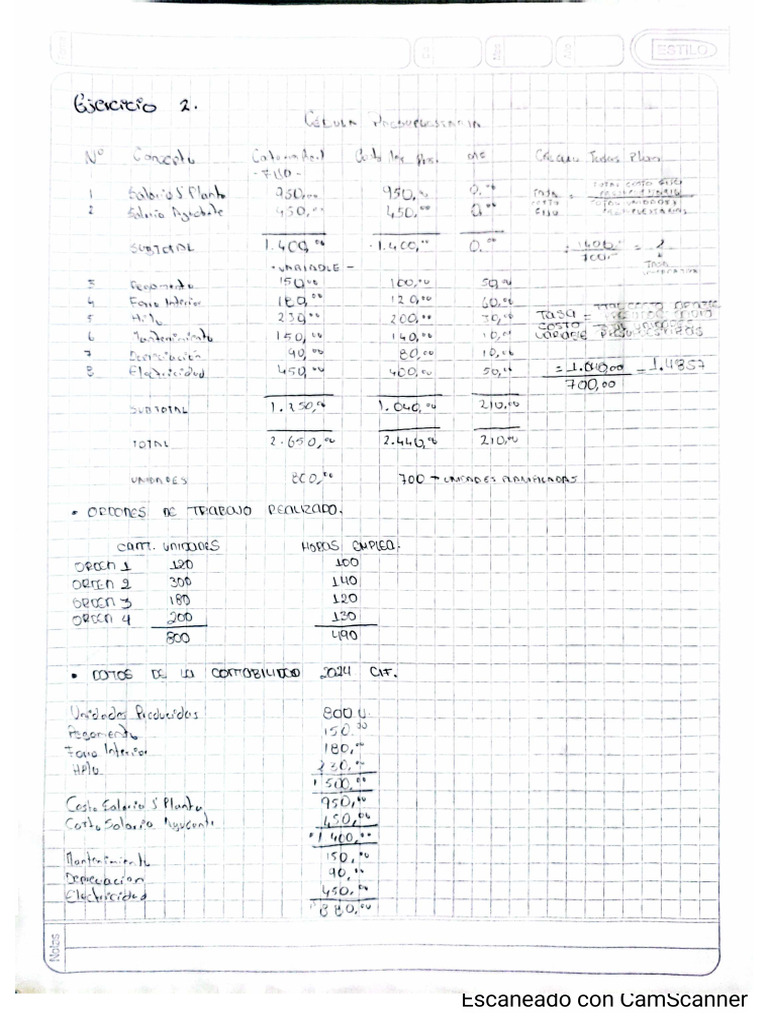 ESTILO
Ejercicio 2.
CÉLULA PRESUPUESTARIA
N° Concepto
- FIJO -
1 Salario S Planta 950,00 950,00 0,00
2 Salario Ayudante 450,00 450,00 0,00
SUBTOTAL 1.400,00 1.400,00 0,00
- VARIABLE -
3 Pegamento 150,00 100,00 50,00
4 Forro Interior 180,00 120,00 60,00
5 Hilo 230,00 200,00 30,00
6 Mantenimiento 150,00 140,00 10,00
7 Depreciación 90,00 80,00 10,00
8 Electricidad 450,00 400,00 50,00
TASA COSTO FIJO = TOTAL COSTO FIJO
= 1400,00 = 2
700,00
TASA
TASA COSTO VARIABLE =
= 1.040,00 = 1.4857
700,00
SUBTOTAL 1.250,00 1.040,00 210,00
TOTAL 2.650,00 2.440,00 210,00
UNIDADES 800,00 700 → UNIDADES PLANIFICADAS
• ORDENES DE TRABAJO REALIZADO.
CANT. UNIDADES HORAS EMPLEA.
ORDEN 1 120 100
ORDEN 2 300 140
ORDEN 3 180 120
ORDEN 4 200 130
800 490
• DATOS DE LA CONTABILIDAD 2024 CIF.
Unidades Producidas 800 U.
Pegamento 150.00
Forro Interior 180,00
Hilo 230,00
500,00
Costo Salario S Planta 950,00
Costo Salario Ayudante 450,00
1400,00
Mantenimiento 150,00
Depreciacion 90,00
Electricidad 450.00
880,00
Notas
Escaneado con CamScanner